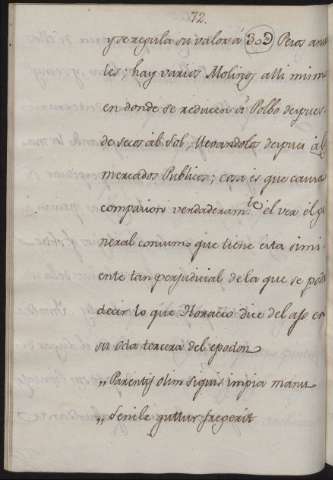 72.
y se regula su valor á 30D Pesos anua
les; hay varios Molinos alli mismo
en donde se reducen á Polbo despues
de secos àl Sol, llevandolos despues à
mercados Publicos; cosa es que causa
compasion verdaderam.te el ver èl ge
neral consumo que tiene esta simi
ente tan perjudicial de la que se pod
decir lo que Horacio dice del ajo en
su oda tercera del epodon
„ Parentis olim siquis impia manu
„ Senile guttur fregerit